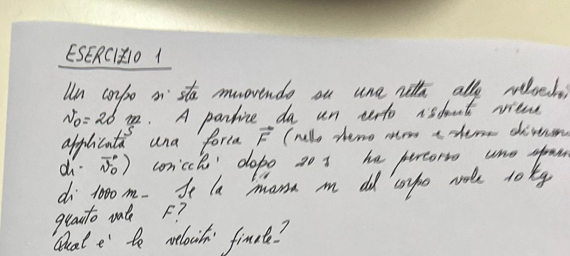 ESERCIZIO 1
Un corpo si sta muovendo su una retta alla velocità
v₀ = 20 m/s. A partire da un certo istante viene
applicata una forza F⃗ (nello stesso verso e stessa direzione
di v⃗₀) cosicché dopo 20 s ha percorso uno spazio
di 1000 m. Se la massa m del corpo vale 10 kg
quanto vale F?
Qual è la velocità finale?